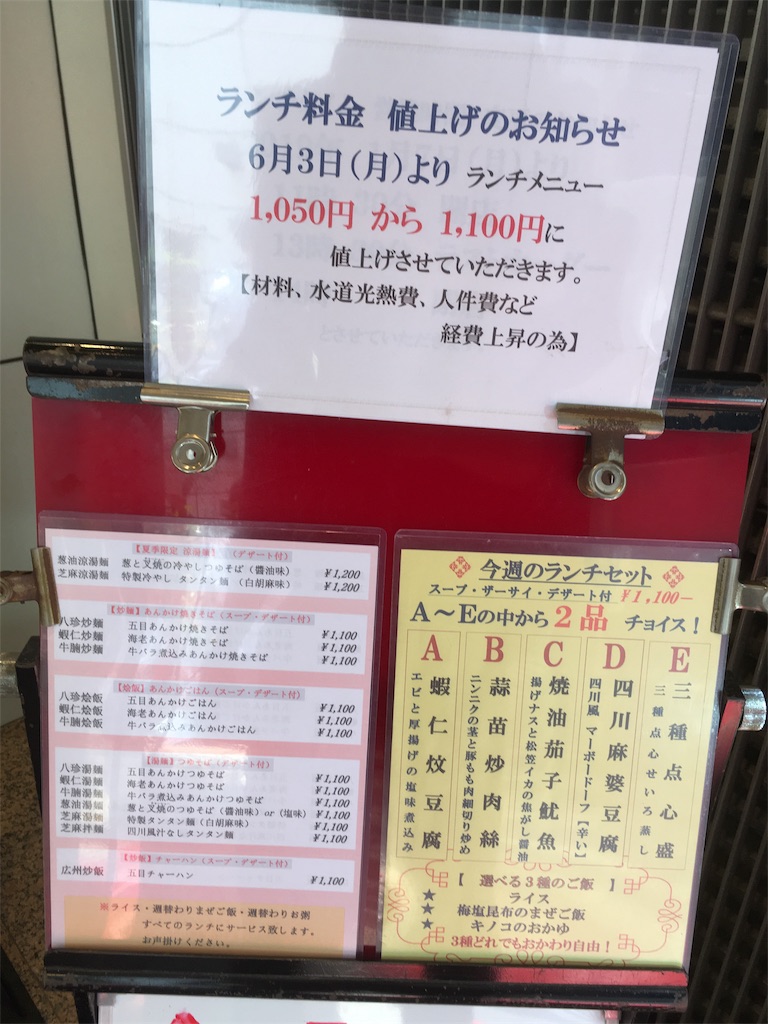 ランチ料金 値上げのお知らせ
6月3日(月)より ランチメニュー
1,050円 から 1,100円に
値上げさせていただきます。
【材料、水道光熱費、人件費など
経費上昇の為】
【夏季限定 涼湯麺】(デザート付)
葱油涼湯麺 葱と叉焼の冷やしつゆそば(醤油味) ¥1,200
芝麻涼湯麺 特製冷やし タンタン麺 (白胡麻味) ¥1,200
【炒麺】あんかけ焼きそば(スープ・デザート付)
八珍炒麺 五目あんかけ焼きそば ¥1,100
蝦仁炒麺 海老あんかけ焼きそば ¥1,100
牛腩炒麺 牛バラ煮込みあんかけ焼きそば ¥1,100
【燴飯】あんかけごはん(スープ・デザート付)
八珍燴飯 五目あんかけごはん ¥1,100
蝦仁燴飯 海老あんかけごはん ¥1,100
牛腩燴飯 牛バラ煮込みあんかごはん ¥1,100
【湯麺】つゆそば(デザート付)
八珍湯麺 五目あんかけつゆそば ¥1,100
蝦仁湯麺 海老あんかけつゆそば ¥1,100
牛腩湯麺 牛バラ煮込みあんかけつゆそば ¥1,100
葱油湯麺 葱と叉焼のつゆそば(醤油味)or(塩味) ¥1,100
芝麻湯麺 特製タンタン麺(白胡麻味) ¥1,100
芝麻拌麺 四川風汁なしタンタン麺 ¥1,100
【炒飯】チャーハン(スープ・デザート付)
広州炒飯 五目チャーハン ¥1,100
※ライス・週替わりまぜご飯・週替わりお粥
すべてのランチにサービス致します。
お声掛けください。
今週のランチセット
スープ・ザーサイ・デザート付 ¥1,100-
A～Eの中から2品 チョイス!
A
蝦仁炆豆腐
エビと厚揚げの塩味煮込み
B
蒜苗炒肉絲
ニンニクの茎と豚もも肉細切り炒め
C
焼油茄子魷魚
揚げナスと松笠イカの焦がし醤油
D
四川麻婆豆腐
四川風 マーボードーフ【辛い】
E
三種点心盛
三種点心せいろ蒸し
【 選べる3種のご飯 】
★ ライス
★ 梅塩昆布のまぜご飯
★ キノコのおかゆ
3種どれでもおかわり自由!